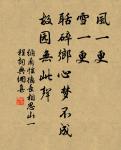 風一更
雪一更
聒碎鄉心夢不成
故園無此聲
納蘭性德長相思山一
程詞典網集